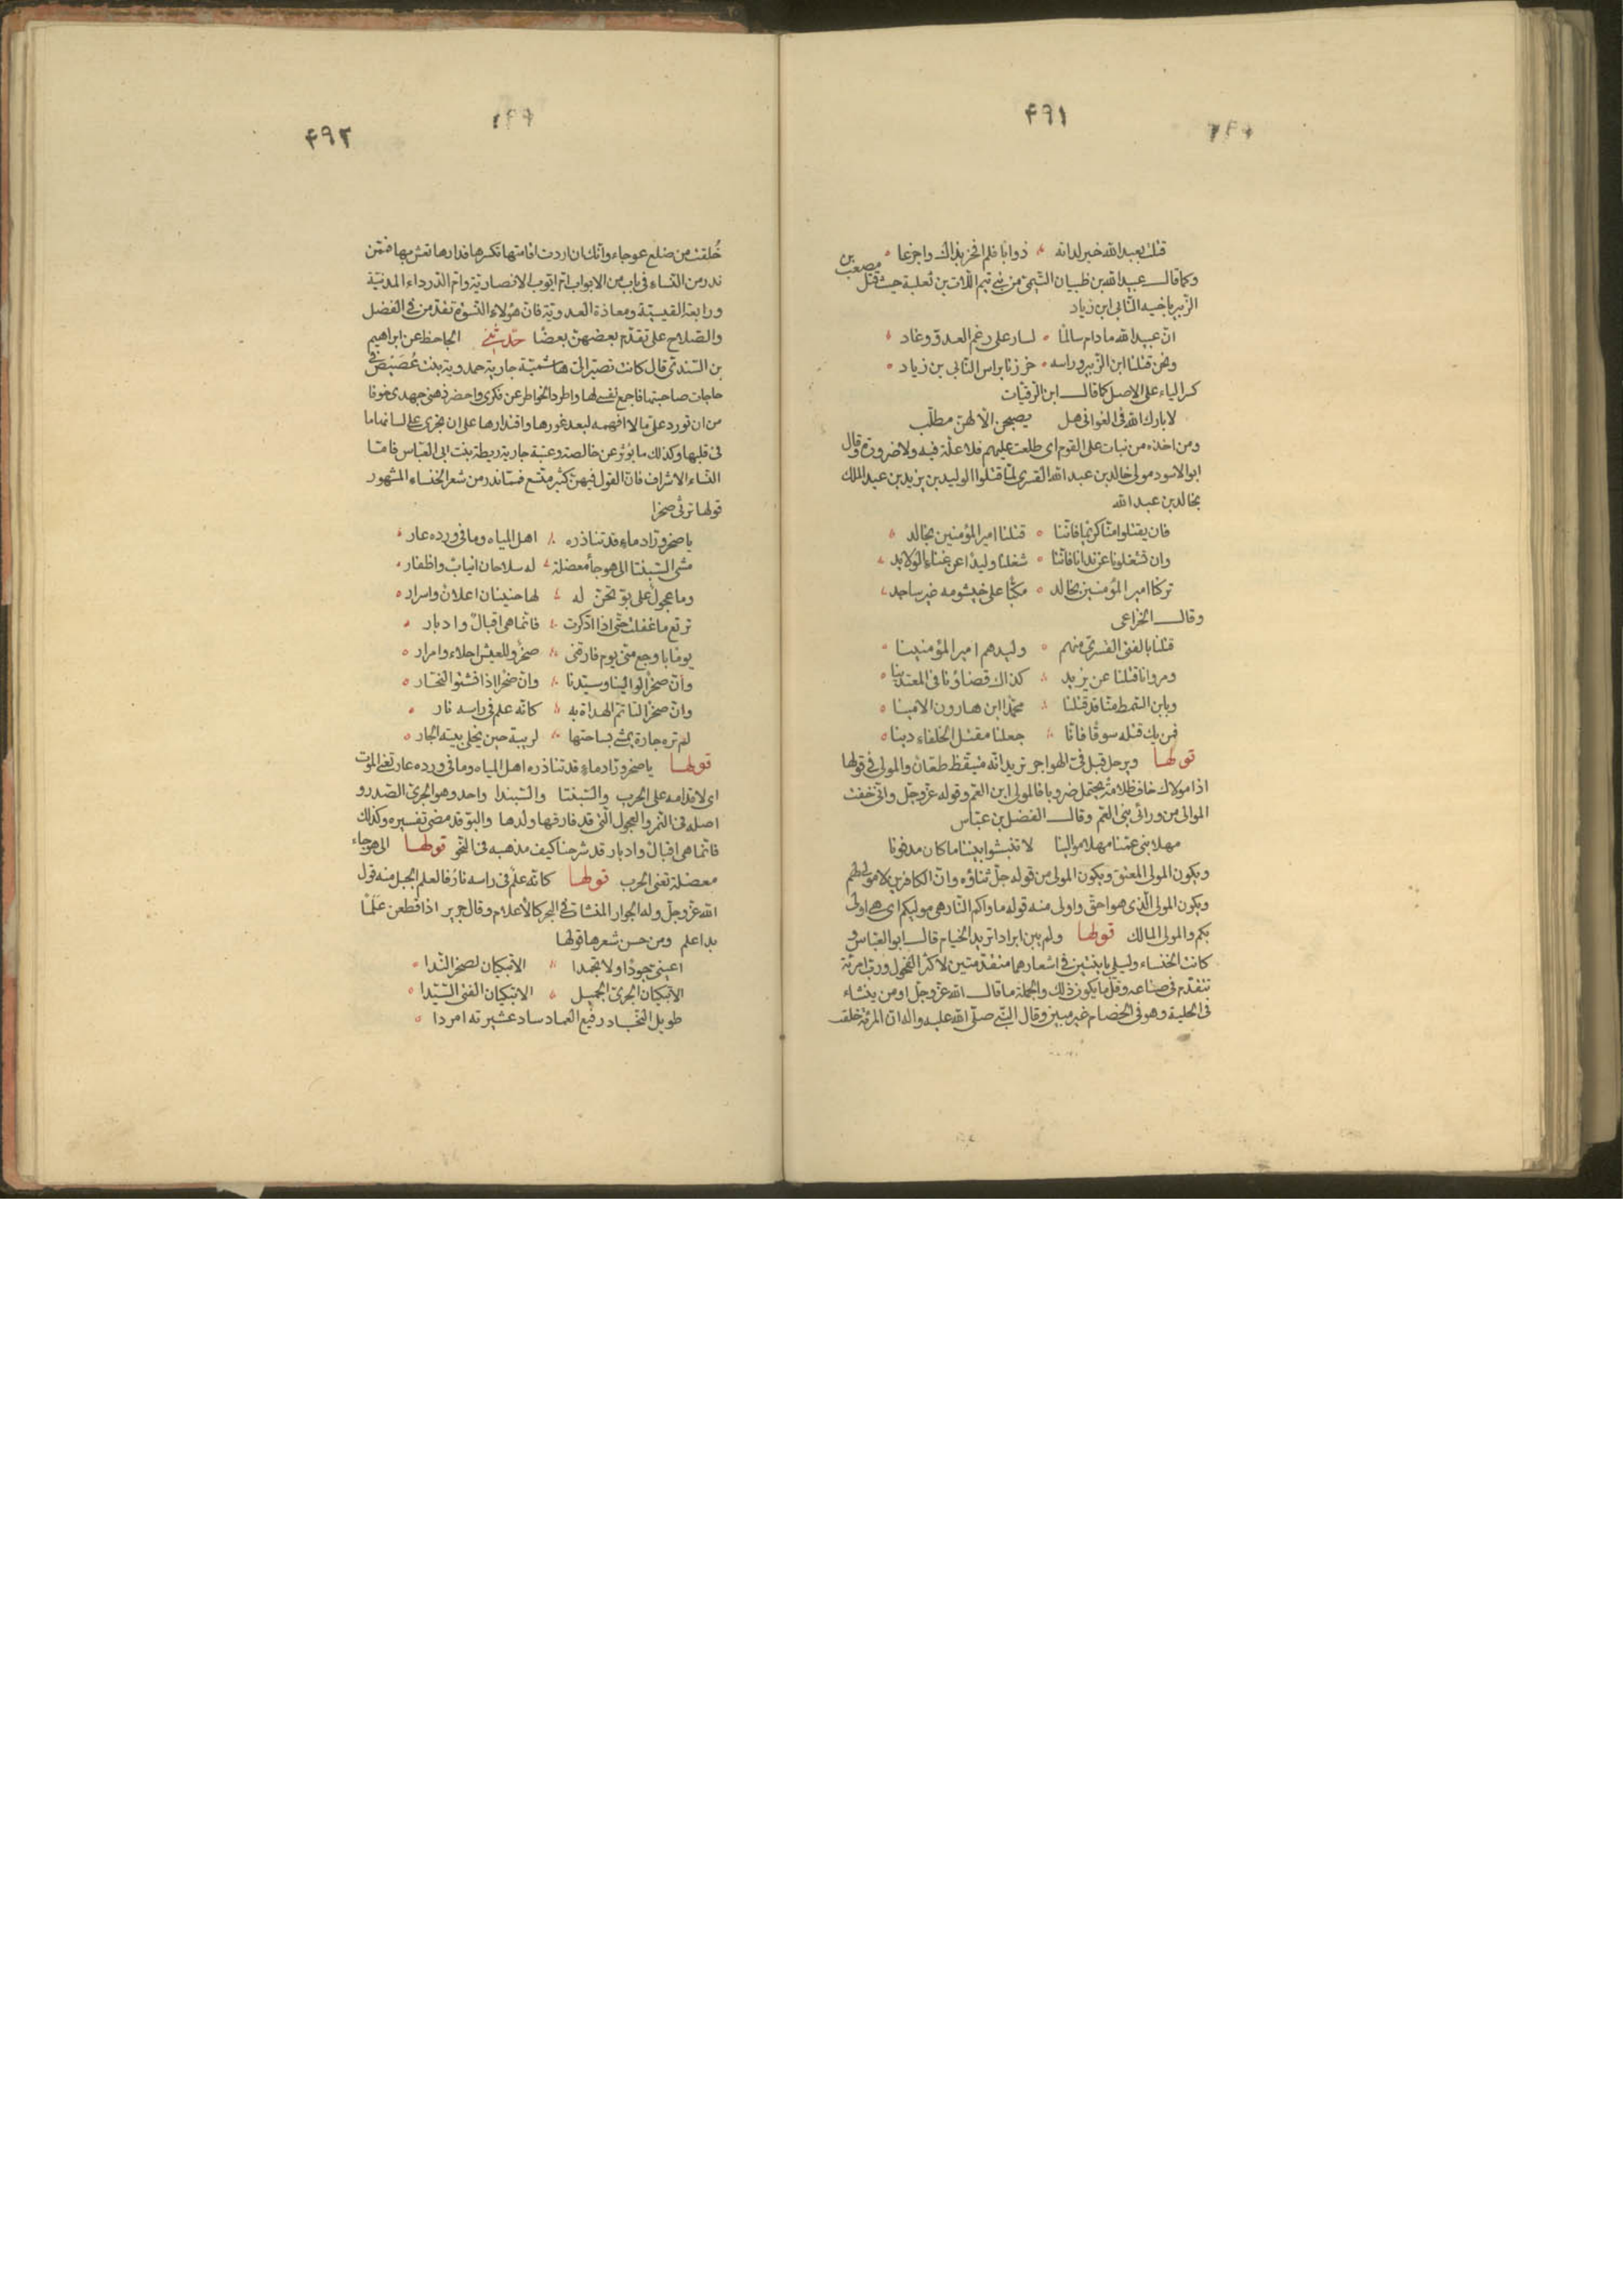 ٤٩١
قتلت بعبد الله خير لداته ذوابا فلم افخر بذاك واجزعا
وكما قال عبيد الله بن ظبيان التيمى من بنى تيم اللات بن ثعلبة حيث قتل مصعب بن
الزبير باخيه النابى ابن زياد
ان عبيد الله ما دام سالما لسار على رغم العدو وغاد
ونحن قتلنا ابن الزبير وراسه حززنا براس النابى بن زياد
كسر الياء على الاصل كما قال ابن الرقيات
لا بارك الله فى الغوانى هل يصبحن الا لهن مطلب
ومن اخذه من نبات على القوم اى طلعت عليهم فلا علة فيه ولا ضرورة وقال
ابو الاسود مولى خالد بن عبد الله القسرى لما قتلوا الوليد بن يزيد بن عبد الملك
بخالد بن عبد الله
فان يقتلوا منا كريما فاننا قتلنا امير المؤمنين بخالد
وان تشغلونا عن ندانا فاننا شغلنا وليدا عن غناء الولايد
تركنا امير المؤمنين بخالد مكبا على خيشومه غير ساجد
وقال الخزاعى
قتلنا بالفتى القسرى منهم وليدهم امير المؤمنينا
ومروانا قتلنا عن يزيد كذاك قضاؤنا فى المعتدينا
وبابن السمط منا قد قتلنا محمدا ابن هارون الامينا
فمن يك قتله سوقا فانا جعلنا مقتل الخلفاء دينا
قولها ويرحل قبل فئ الهواجر تريد انه متيقظ طعان والمولى فى قولها
اذا مولاك خاف ظلامة يحتمل ضروبا فالمولى ابن العم وقوله عز وجل وانى خفت
الموالى من ورائى بنى العم وقال الفضل بن عباس
مهلا بنى عمنا مهلا موالينا لا تنبشوا بيننا ما كان مدفونا
ويكون المولى المعتق ويكون المولى من قوله جل ثناؤه وان الكافرين لا مولى لهم
ويكون المولى الذى هو احق واولى منه قوله ماواكم النار هى موليكم اى هى اولى
بكم والمولى المالك قولها ولم يبن ابرادا تريد الخيام قال ابو العباس و
كانت الخنساء وليلى باينتين فى اشعارهما متقدمتين لاكثر الفحول ورب امرئة
تتقدم فى صناعه وقل ما يكون ذلك والجملة ما قال الله عز وجل او من ينشاء
فى الحلية وهو فى الخصام غير مبين وقال النبى صلى الله عليه واله ان المرئة خلقت
٤٩٢
خلقت من ضلع عوجاء وانك ان اردت اقامتها تكسرها فدارها تعش بها فممن
ندر من النساء فى باب من الابواب ام ايوب الانصارية وام الدرداء المدنية
ورابعة القيسية ومعاذة العدوية فان هؤلاء النسوة تقدمن فى الفضل
والصلاح على تقدم بعضهن بعضا حدثنى الجاحظ عن ابراهيم
بن السندى قال كانت تصير الى هاشمية جارية حمدوية بنت غضيض فى
حاجات صاحبتها فاجمع نفسى لها واطرد الخواطر عن فكرى واحضر ذهنى جهدى خوفا
من ان تورد على ما لا افهمه لبعد غورها واقتدارها على ان تجرى على لسانها ما
فى قلبها وكذلك ما يؤثر عن خالصة وعتبة جارية ريطة بنت ابى العباس فاما
النساء الاشراف فان القول فيهن كثير متسع فمما ندر من شعر الخنساء المشهور
قولها ترثى صخرا
يا صخر وراد ماء قد تناذره اهل المياه وما فى ورده عار
مشى السبنتا الى هوجاء معضلة له سلاحان انياب واظفار
وما عجول على بو تحن له لها حنينان اعلان واسرار
ترتع ما غفلت حتى اذا ادكرت فانما هى اقبال وادبار
يوما باوجع منى يوم فارقنى صخر وللعيش احلاء وامرار
وان صخرا لوالينا وسيدنا وان صخرا اذا نشتو لنحار
وان صخرا لتاتم الهداة به كانه علم فى راسه نار
لم تره جارة يمشى بساحتها لريبة حين يخلى بيته الجار
قولها يا صخر وراد ماء قد تناذره اهل المياه وما فى ورده عار تعنى الموت
اى لاقدامه على الحرب والسبنتا والسبندا واحد وهو الجرئ الصدر و
اصله فى النمر والعجول التى قد فارقها ولدها والبو قد مضى تفسيره وكذلك
فانما هى اقبال وادبار قد شرحنا كيف مذهبه فى النحو قولها الى هوجاء
معضلة تعنى الحرب قولها كانه علم فى راسه نار فالعلم الجبل منه قول
الله عز وجل وله الجوار المنشات فى البحر كالاعلام وقال جرير اذا قطعن علما
بدا علم ومن حسن شعرها قولها
اعينى جودا ولا تجمدا الا تبكيان لصخر الندا
الا تبكيان الجرئ الجميل الا تبكيان الفتى السيدا
طويل النجاد رفيع العماد ساد عشيرته امردا